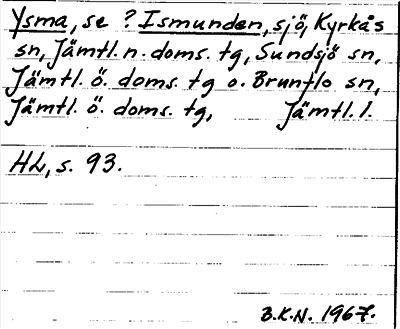 Ysma, se ? Ismunden, sjö, Kyrkås
sn, Jämtl. n. doms. tg, Sundsjö sn,
Jämtl. ö. doms. tg o. Brunflo sn,
Jämtl. ö. doms. tg, Jämtl. l.
HL, s. 93.
B.K.N. 1967.